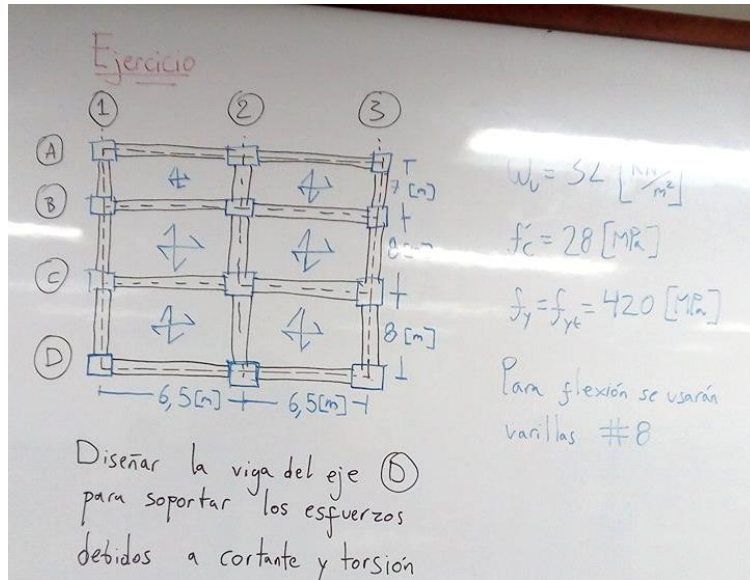 Ejercicio
1 2 3
A
7 [m]
B
C
8 [m]
D
6,5[m] 6,5[m]
f'c = 28 [MPa]
fy = fyt = 420 [MPa]
Para flexión se usarán
varillas #8
Diseñar la viga del eje
para soportar los esfuerzos
debidos a cortante y torsión